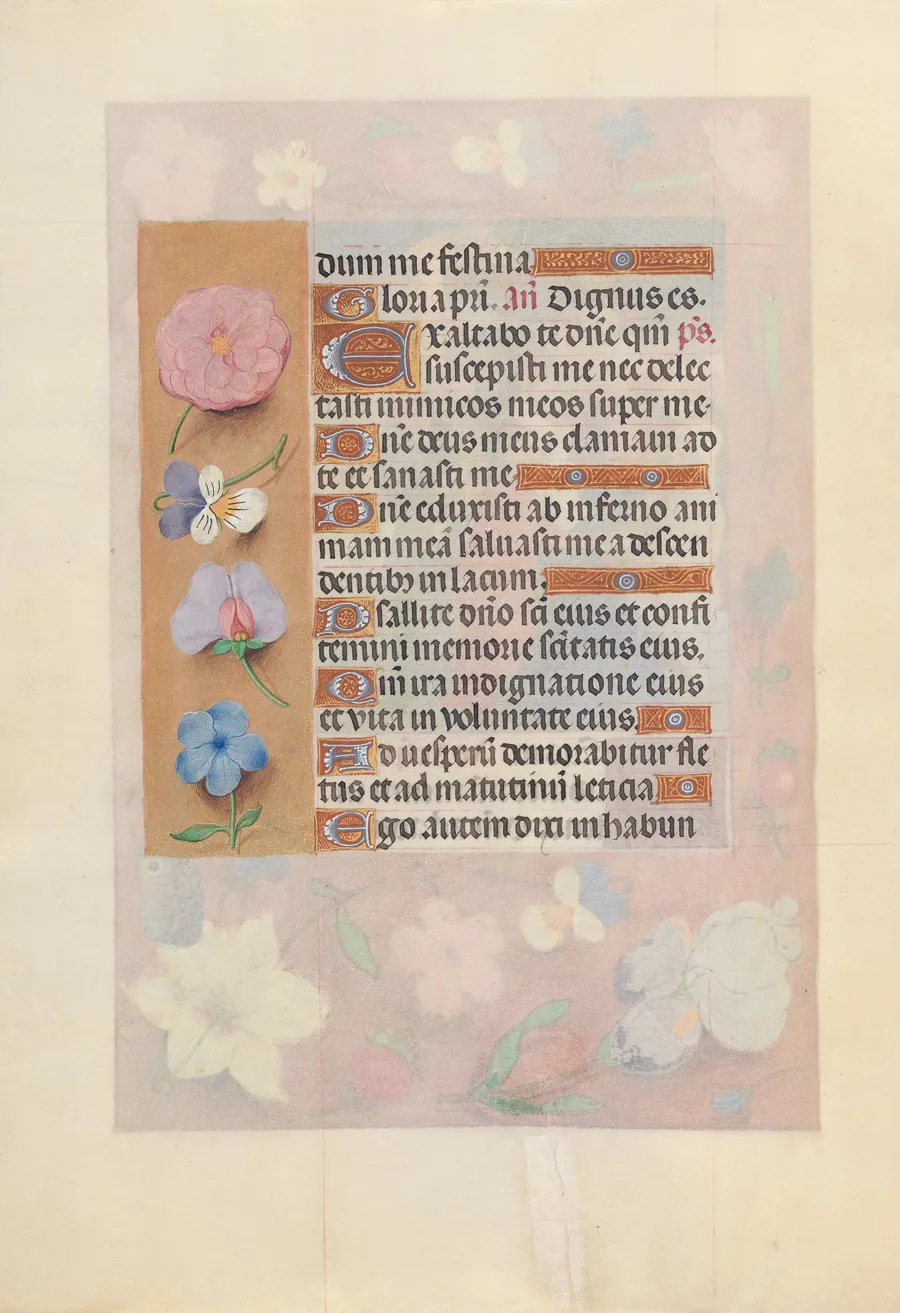 dum me festina
Gloria pri. añ Dignus es.
Exaltabo te dñe qm̄ ps.
suscepisti me nec delec
tasti inimicos meos super me.
Dñe deus meus clamaui ad
te et sanasti me
Dñe eduxisti ab inferno ani
mam meā saluasti me a descen
dentibꝫ in lacum.
Psallite dño scī eius et confi
temini memorie scītatis eius.
Qm̄ ira indignatione eius
et vita in voluntate eius
Ad uesperū demorabitur fle
tus et ad matutinū leticia
Ego autem dixi in habun